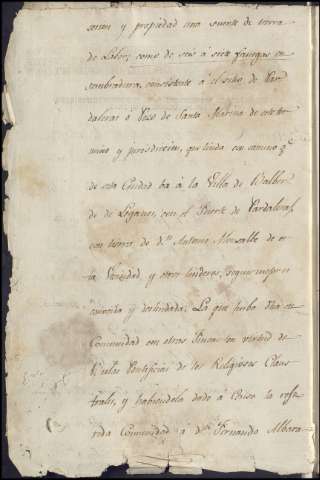 sesion y propiedad una suerte de tierra
de Labor, como de seis á siete fanegas en
sembradura, consistente á el sitio de Par
daleras ó Pozo de Santa Marina de este ter
mino y jurisdicion, que linda con camino qᵉ
de esta Ciudad ba á la Villa de Balber
de de Leganes, con el Fuerte de Pardaleras,
con tierra de Dⁿ Antonio Monsalbe de es
ta Vecindad y otros linderos, segun mejor es
conocida y deslindada: La que hubo dha
Comunidad con otras Fincas en virtud de
Bulas Pontificias de los Religiosos Claus
trales, y habiendola dado á Censo la refe
rida Comunidad á Dⁿ Fernando Albara